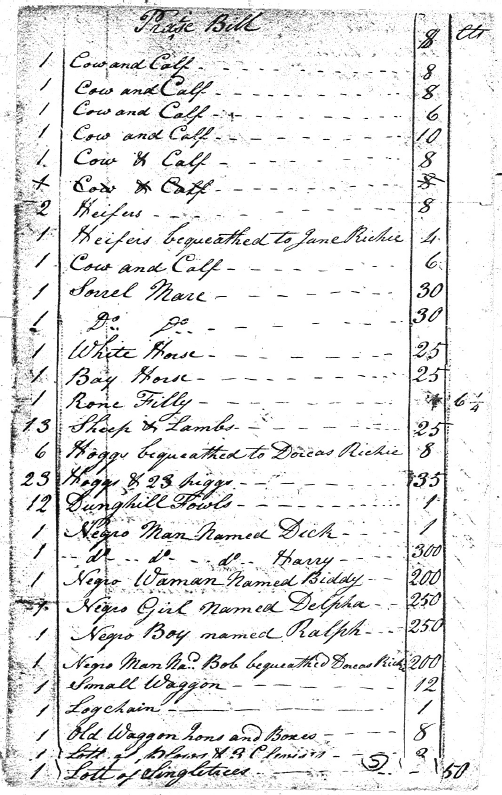 Praise Bill $ Cts
1 Cow and Calf 8
1 Cow and Calf 8
1 Cow and Calf 6
1 Cow and Calf 10
1 Cow & Calf 8
1 Cow & Calf 8
2 Heifers 8
1 Heifers bequeathed to Jane Richie 4
1 Cow and Calf 6
1 Sorrel Mare 30
1 Do Do 30
1 White Horse 25
1 Bay Horse 25
1 Rone Filly 6 1/4
13 Sheep & Lambs 25
6 Hoggs bequeathed to Dorcas Richie 8
23 Hoggs & 23 piggs 35
12 Dunghill Fowls 1
1 Negro Man Named Dick 1
1 do do do Harry 300
1 Negro Waman Named Biddy 200
1 Negro Girl named Delpha 250
1 Negro Boy named Ralph 250
1 Negro Man Na.d Bob bequeathed Dorcas Richie 200
1 Small Waggon 12
1 Logchain 1
1 Old Waggon Irons and Boxes 8
1 Lott of Plows & 3 Clevises 3
1 Lott of Singletrees (5) 50